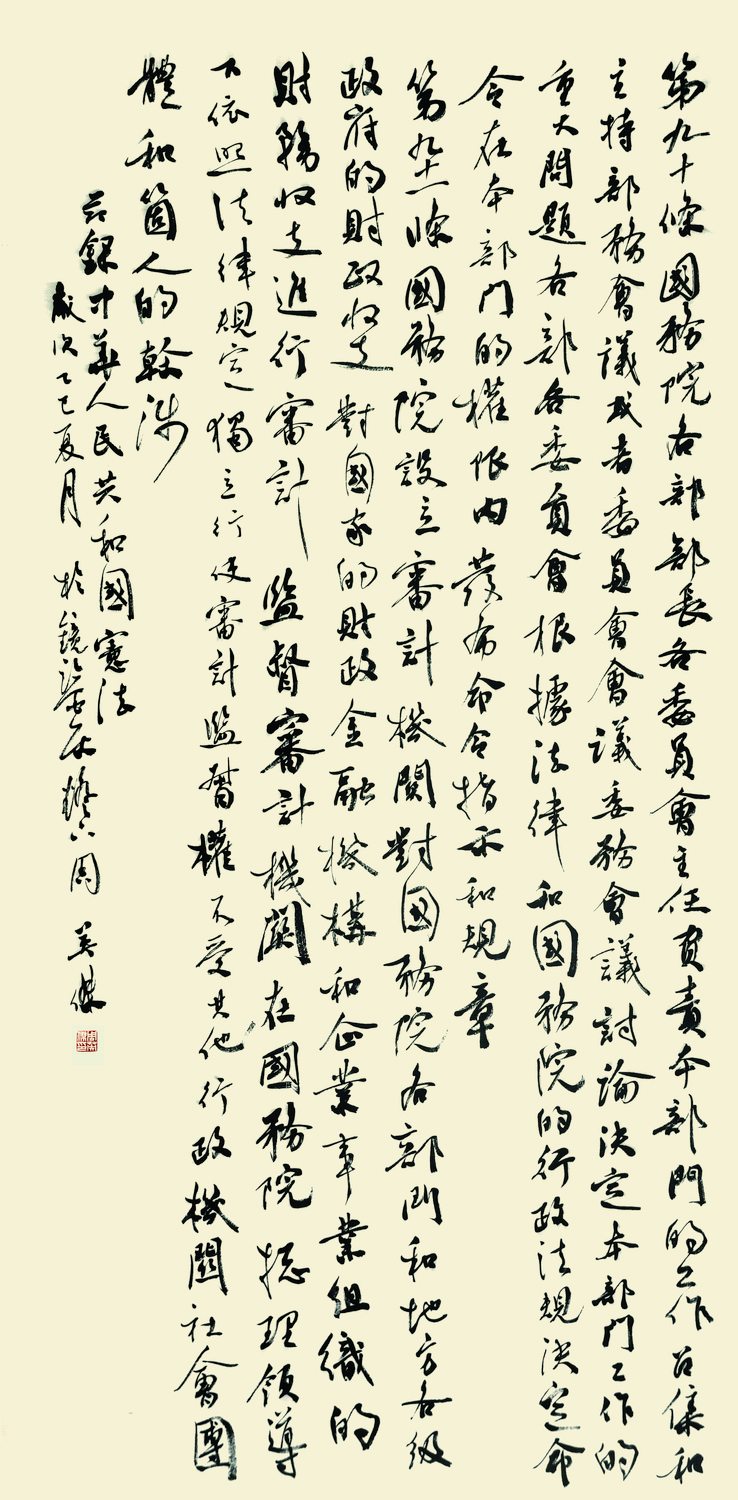 第九十條國務院各部部長各委員會主任負責本部門的工作召集和
主持部務會議或者委員會會議委務會議討論決定本部門工作的
重大問題各部各委員會根據法律和國務院的行政法規決定命
令在本部門的權限内發布命令指示和規章
第九十一條國務院設立審計機關對國務院各部門和地方各級
政府的財政收支對國家的財政金融機構和企業事業組織的
財務收支進行審計監督審計機關在國務院總理領導
下依照法律規定獨立行使審計監督權不受其他行政機關社會團
體和箇人的幹涉
節錄中華人民共和國憲法
歲次乙巳夏月於鏡